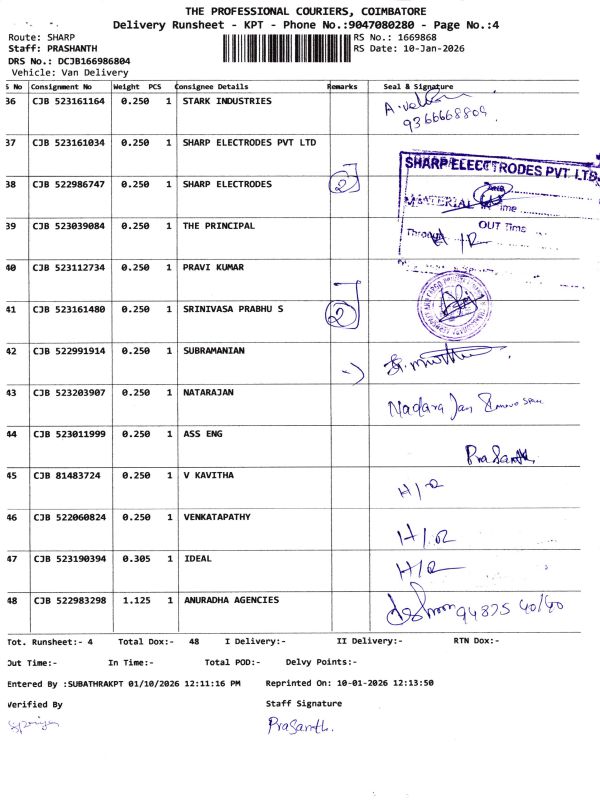 THE PROFESSIONAL COURIERS, COIMBATORE
Delivery Runsheet - KPT - Phone No.:9047080280 - Page No.:4
Route: SHARP
RS No.: 1669868
Staff: PRASHANTH
RS Date: 10-Jan-2026
DRS No.: DCJB166986804
Vehicle: Van Delivery
S No Consignment No Weight PCS Consignee Details Remarks Seal & Signature
36 CJB 523161164 0.250 1 STARK INDUSTRIES
9366668809
37 CJB 523161034 0.250 1 SHARP ELECTRODES PVT LTD
SHARP ELECTRODES PVT. LTD.
38 CJB 522986747 0.250 1 SHARP ELECTRODES 2
MATERIAL
Time
39 CJB 523039084 0.250 1 THE PRINCIPAL
OUT Time
Through
40 CJB 523112734 0.250 1 PRAVI KUMAR
41 CJB 523161480 0.250 1 SRINIVASA PRABHU S 2
42 CJB 522991914 0.250 1 SUBRAMANIAN
43 CJB 523203907 0.250 1 NATARAJAN
Nadara Jan
44 CJB 523011999 0.250 1 ASS ENG
Prasanth.
45 CJB 81483724 0.250 1 V KAVITHA H/R
46 CJB 522060824 0.250 1 VENKATAPATHY H/R
47 CJB 523190394 0.305 1 IDEAL H/R
48 CJB 522983298 1.125 1 ANURADHA AGENCIES 94875 40/40
Tot. Runsheet:- 4 Total Dox:- 48 I Delivery:- II Delivery:- RTN Dox:-
Out Time:- In Time:- Total POD:- Delvy Points:-
Entered By :SUBATHRAKPT 01/10/2026 12:11:16 PM Reprinted On: 10-01-2026 12:13:50
Verified By Staff Signature
Prasanth.